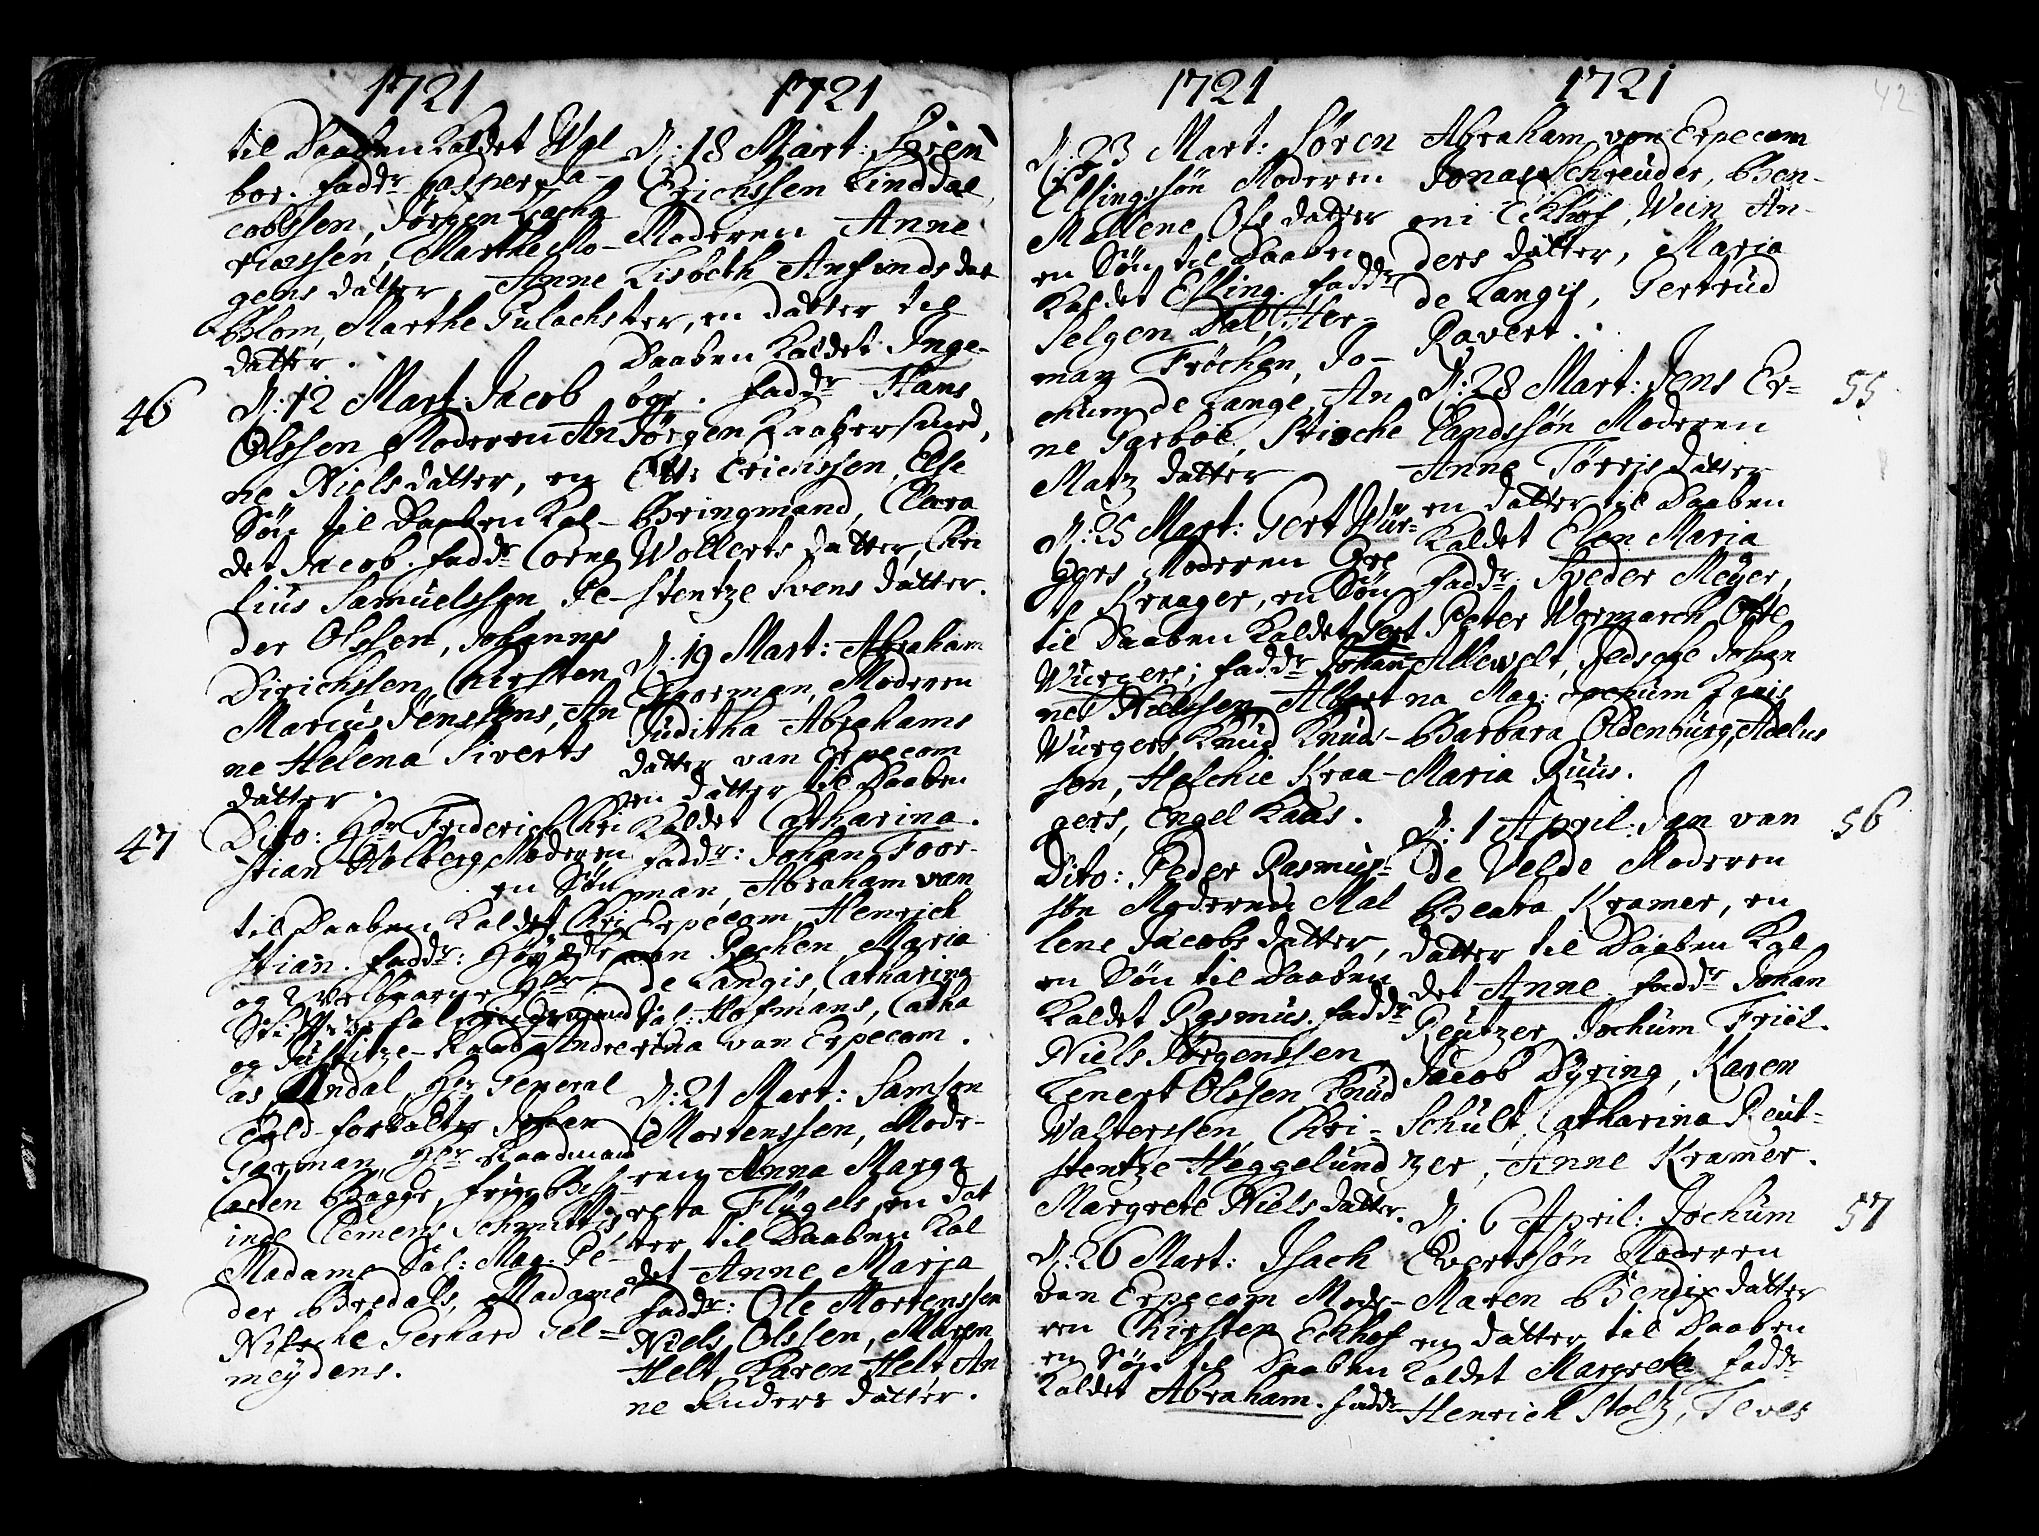 1721
til Daaben kaldet Wal
bor. fadd:r Casper Ja-
cobssen, Jørgen Zacha
riassen, Marthe Mo-
gens datter, Anne
Blom, Marthe Gulachs
datter.
46
D: 12 Mart: Jacob
Olssen Moderen An
ne Niels datter, en
Søn til Daaben kal-
det Jacob. fadd:r Corne
lius Samuelssen Pe-
der Olssen, Johannes
Dirichssen, Chirsten
Marcus Jenssens, An
ne Helena Siverts
datter.
47
Dito: H:r Friderich Chri
stian Holberg, Moderen
en Søn
til Daaben kaldet Chri
stian. fadd:r: Høyædle
og Velbaarne H:r
og Justitze-Raad Andre
as Undal, H:r General
Told-forvalter Johan
Garman, H:r Raadmand
Casten Bagge,
inde Clemens Schmitt
Madame Sal: Mag: Pe-
der Bredals, Madame
Nitsche Gerhard Gel=
meydens.
1721
D: 18 Mart: Søren
Erichssen Linddal,
Moderen Anne
Lisbeth Anfinds dat
ter, en datter til
Daaben kaldet Inge-
bor. fadd:r Hans
Jørgen Kaabersmed,
Otte Erichssen, Else
Bringmand, Clara
Wollerts datter, Chri
stentze Svens datter.
D: 19 Mart: Abraham
Foorman, Moderen
Juditha Abrahams
datter van Erpecom
en datter til Daaben
kaldet Catharina.
fadd:r: Johan Foor-
man, Abraham van
Erpecom, Henrich
von Rechen, Maria
de Langis, Catharina
Sal: Hofmans, Catha
rina van Erpecom.
D: 21 Mart: Samson
Mortenssen, Mode-
ren Anna Marga
reta Flügels, en dat
ter til Daaben kal
det Anne Maria
fadd:r: Ole Mortenssen
Niels Olssen, Maren
Helt, Karen Helt, An
ne Anders datter.
1721
D: 23 Mart: Søren
Ellingssøn Moderen
Mallene Ols datter
en Søn til Daaben
kaldet Elling. fadd:r
Selgen Dal, Her-
man Frøchen, Jo-
chum de Lange, An
ne Garboe, Stinche
Matz datter
D: 25 Mart: Gert Wür=
gers Moderen Gre
te Kraager, en Søn
til Daaben kaldet Gert
Würgers; fadd:r Johan
nes Nielssen, Albert
Würgers, Knud Knud-
sen, Helchie Kraa-
gers, Engel Kaas.
Dito: Peder Rasmus-
søn Moderen Mal
lene Jacobs datter,
en Søn til Daaben
kaldet Rasmus. fadd:r
Niels Jørgenssen
Lenert Olssen Knud
Walterssen, Chri-
stentze Heggelund
Margrete Niels datter.
D: 26 Mart: Isach
van Erpecom Mode-
ren Chirsten Eckhof
en Søn til Daaben
kaldet Abraham. fadd:r
1721
42
Abraham van Erpecom
Jonas Schreuder, Ben-
oni Eckhof, Wein An-
ders datter, Maria
de Langis, Gertrud
Ravert.
55
D: 28 Mart: Jens Er-
landssøn Moderen
Anne Tørris datter
en datter til Daaben
kaldet Elen Maria
fadd:r Sveder Meyer,
Peter Vermarck, Otte
Allewelt, Johan
na Mag: Jochum
Barbara Oldenburg, Adelus
Maria Ruus.
56
D: 1 April: Jan van
De Velde Moderen
Beata Kramer, en
datter til Daaben kal
det Anne. fadd:r Johan
Reutzer, Jochum Friel.
Jacob Dyring, Karen
Schult, Catharina Reut-
zer, Anne Kramer.
57
D: 6 April: Jochum
Evertssøn Moderen
Maren Bendix datter
en datter til Daaben
kaldet Margrete fadd:r
Henrich Stoltz, Teves